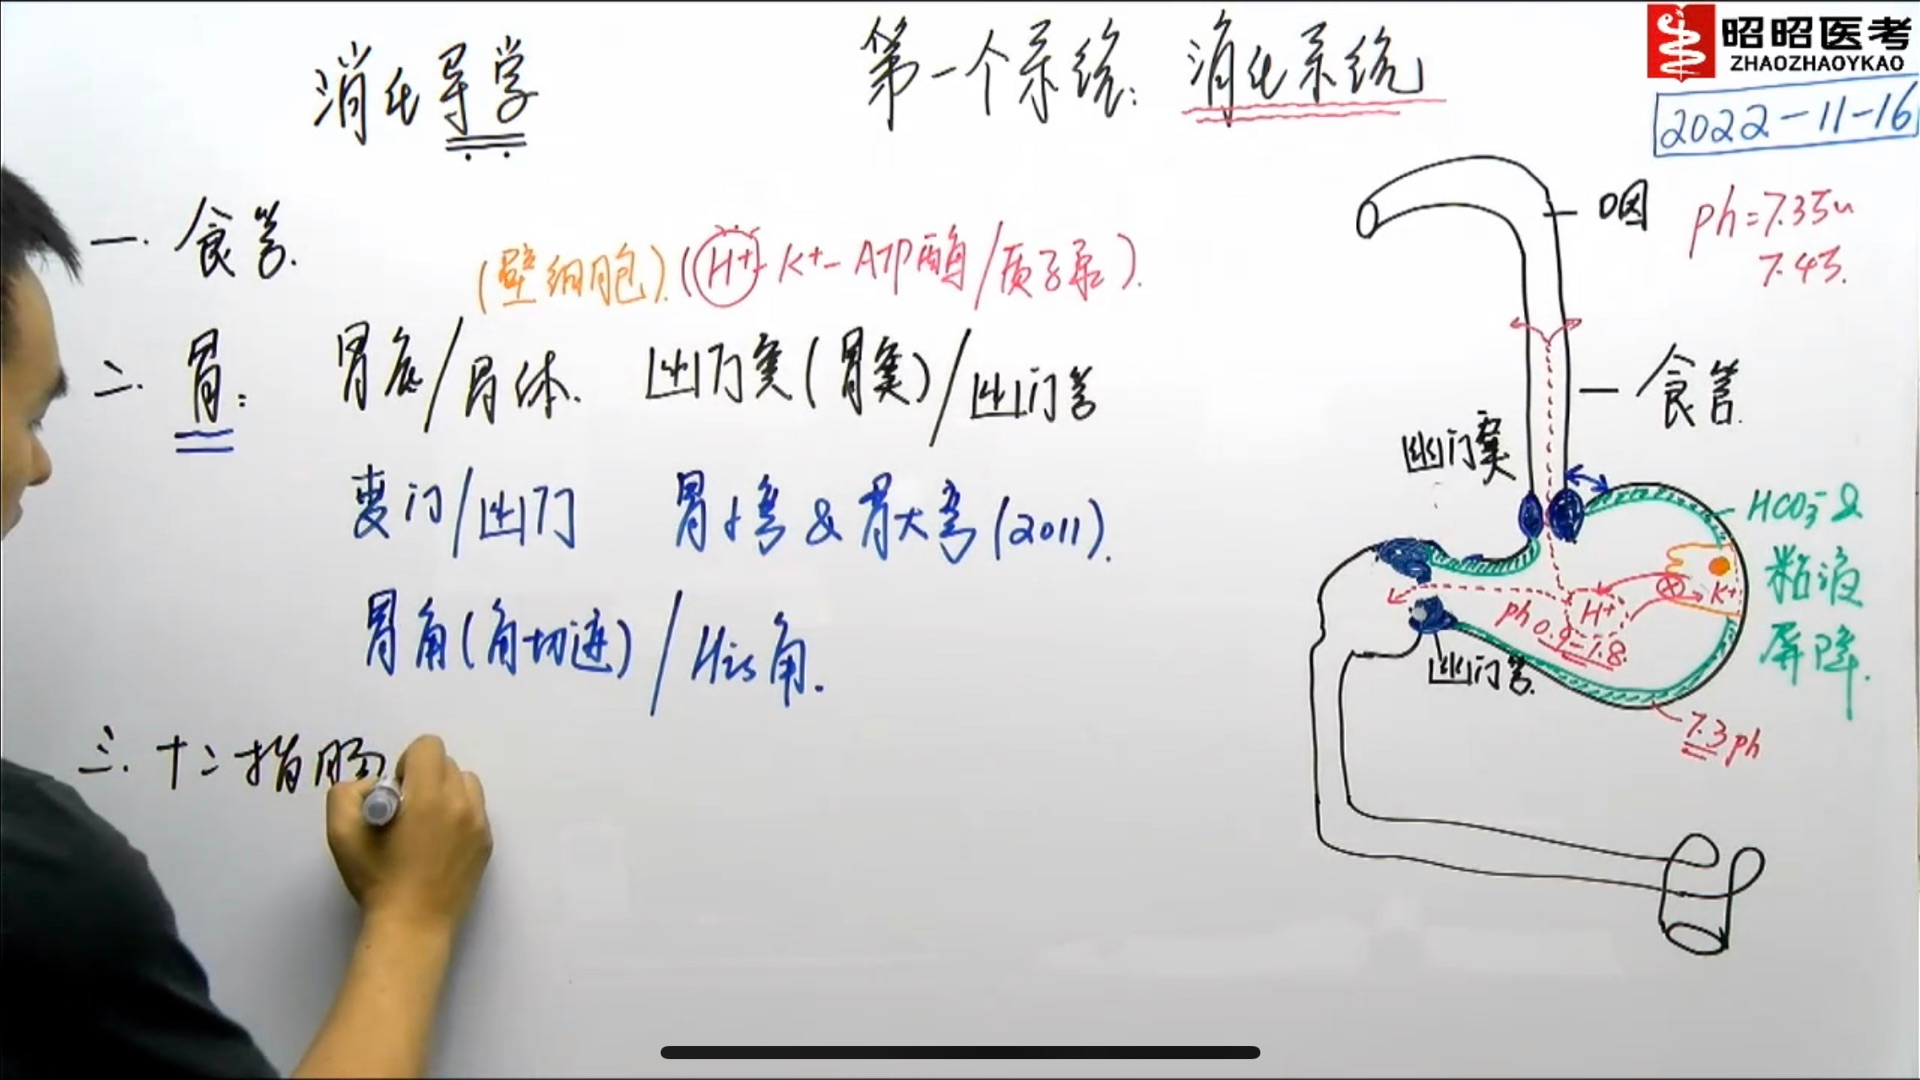 消化导学
第一个系统:消化系统
昭昭医考
ZHAOZHAOYIKAO
2022-11-16
一.食管.
(壁细胞).(H+-K+-ATP酶/质子泵).
二.胃:胃底/胃体. 幽门窦(胃窦)/幽门管
贲门/幽门 胃小弯&胃大弯(2011).
胃角(角切迹)/His角.
三.十二指肠
咽
ph=7.35~
7.45.
食管.
幽门窦
HCO3-&
粘液
屏障.
K+
H+
ph 0.9-1.8.
幽门管.
7.3ph